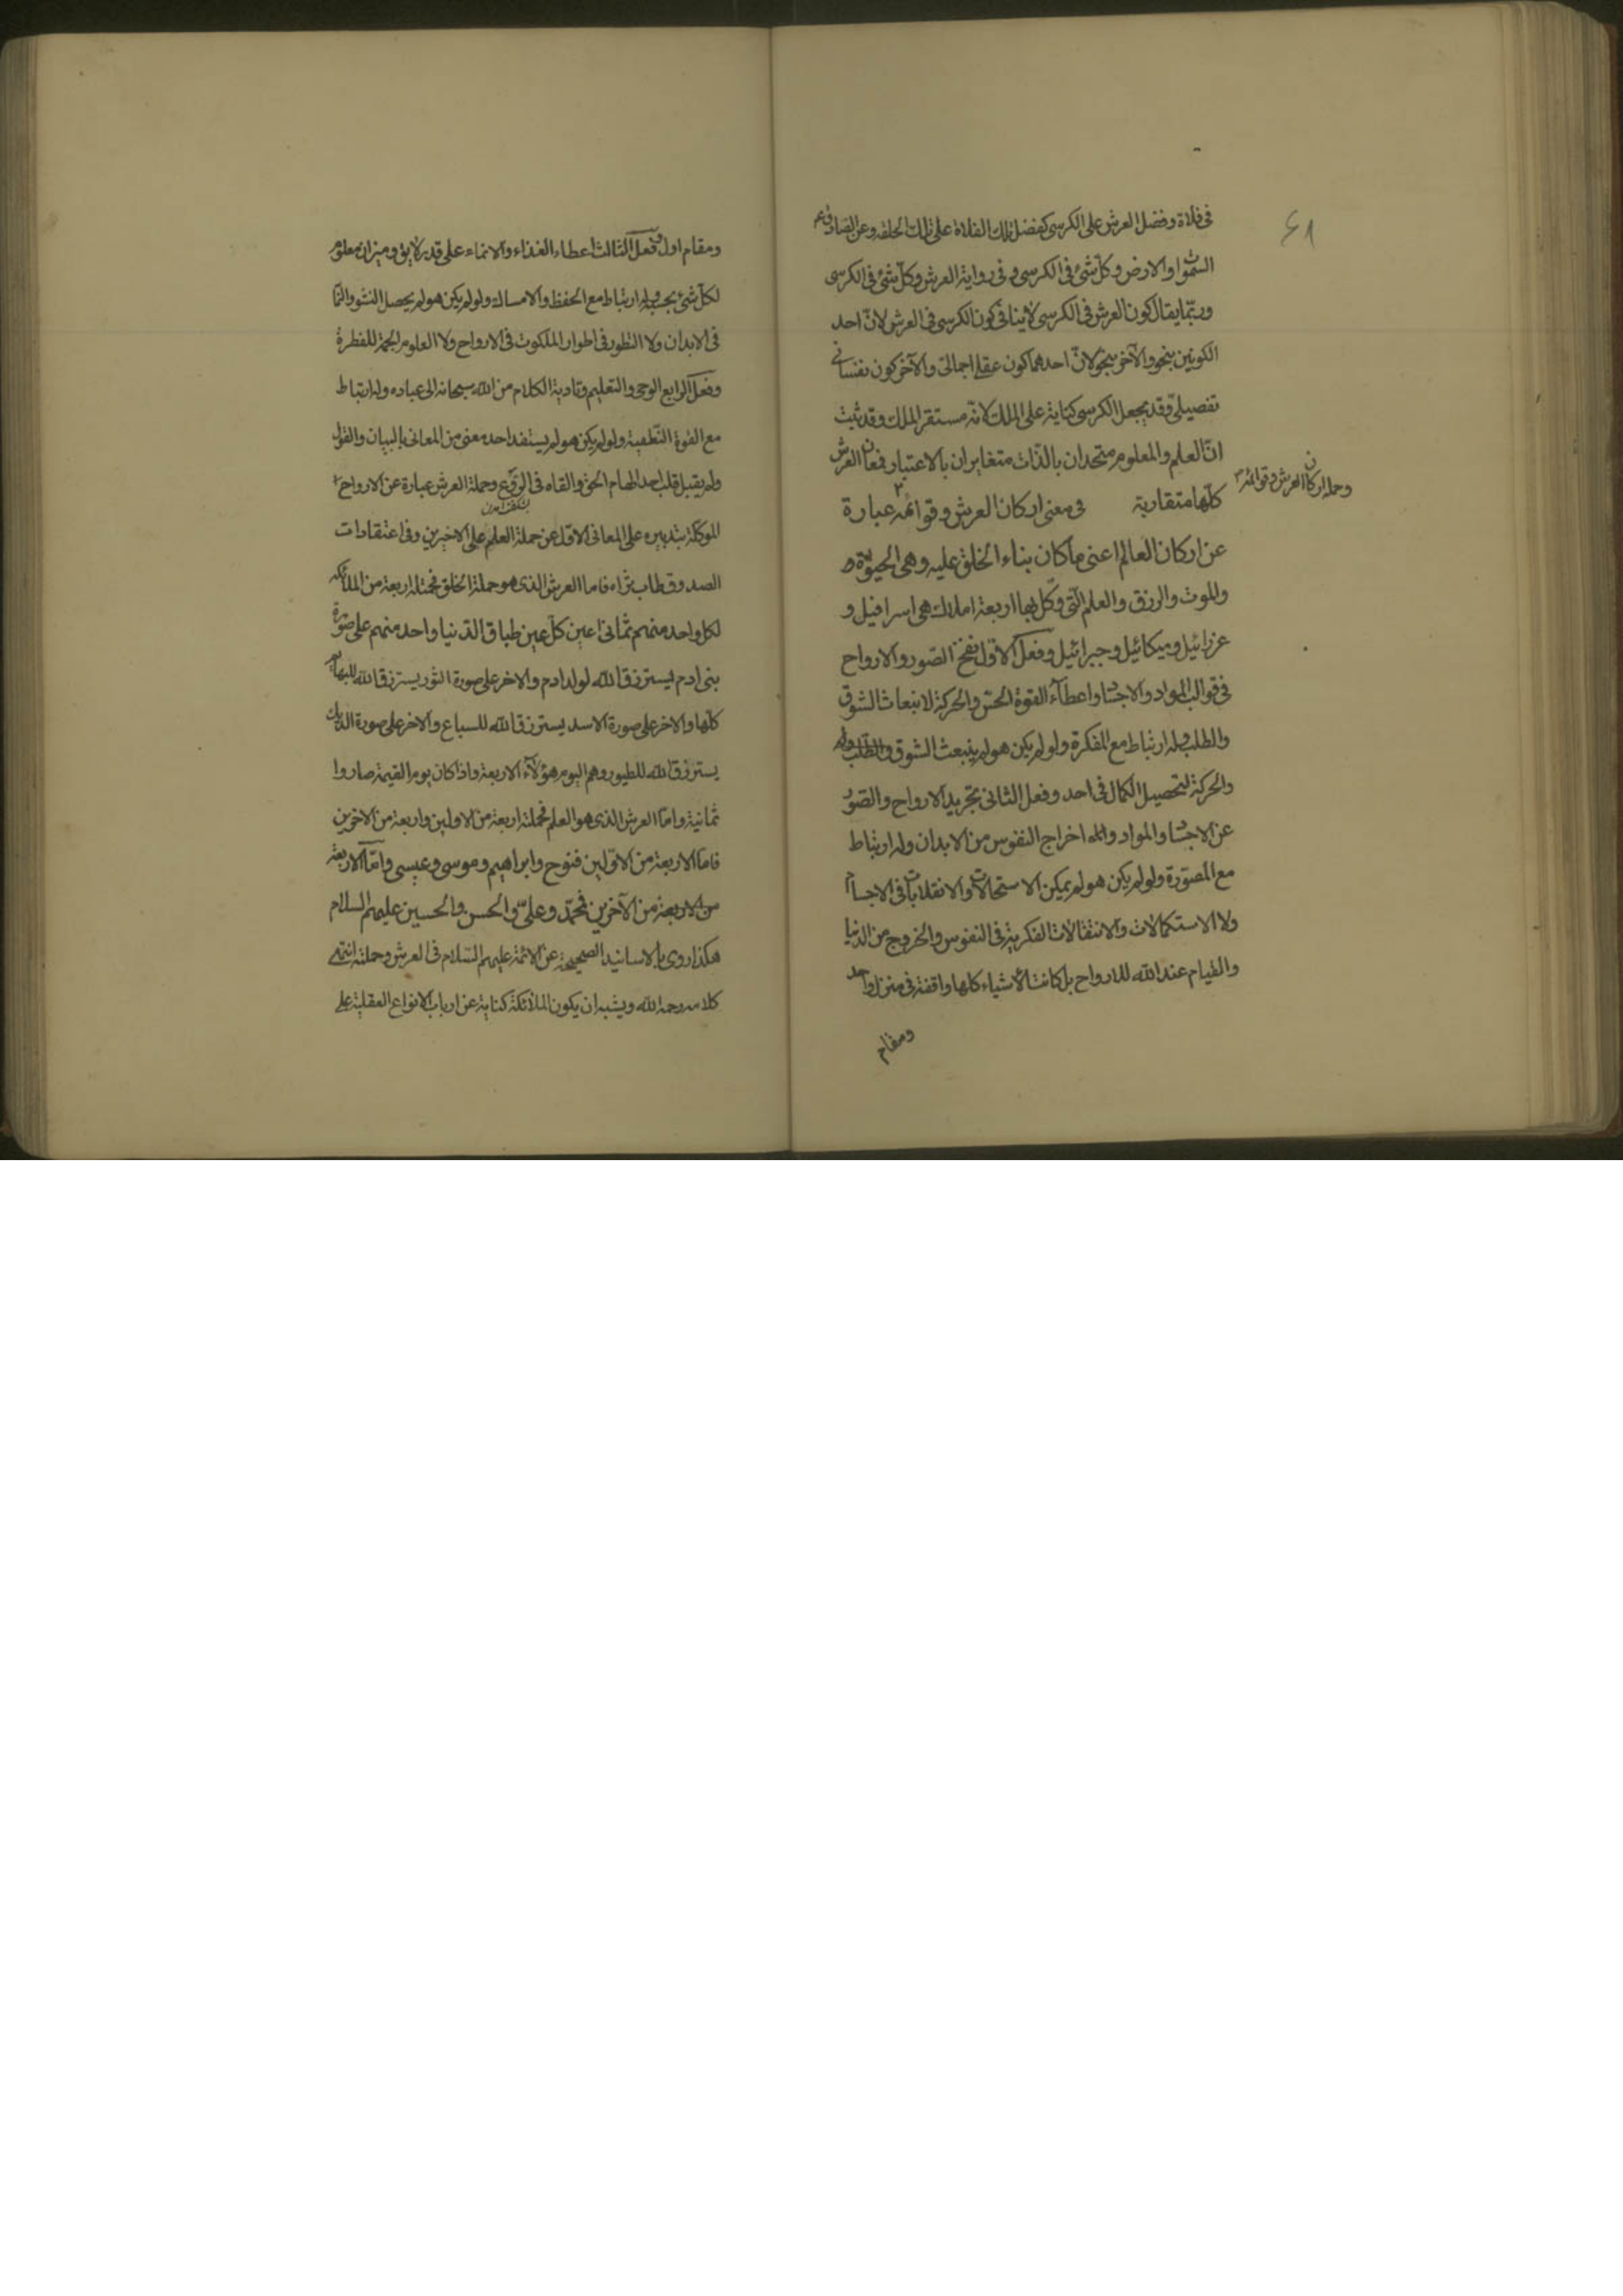 ٤١
فی فلاة وفضل العرش علی الکرسی کفضل تلک الفلاة علی تلک الحلقة وعن الصادق ع
السموات والارض وکل شئ فی الکرسی وفی روایة العرش وکل شئ فی الکرسی
وربما یقال کون العرش فی الکرسی لا ینافی کون الکرسی فی العرش لان احد
الکونین بنحو والآخر بنحو لان احدهما کون عقلی اجمالی والآخر کون نفسانی
تفصیلی وقد یجعل الکرسی کنایة علی الملک لانه مستقر الملک وقد ثبت
ان العلم والمعلوم متحدان بالذات متغایران بالاعتبار فمعانی العرش
کلها متقاربة فی معنی ارکان العرش وقوائمه عبارة
وحملة ارکان العرش وقوائمه
عن ارکان العالم اعنی ما کان بناء الخلق علیه وهی الحیوة
والموت والرزق والعلم التی وکل بها اربعة املاک هی اسرافیل و
عزرائیل ومیکائیل وجبرائیل وفعل الاول نفخ الصور والارواح
فی قوالب المواد والاجساد واعطاء القوة الحس والحرکة لانبعاث الشوق
والطلب وله ارتباط مع المفکرة ولو لم یکن هو لم ینبعث الشوق والطلب
والحرکة لتحصیل الکمال فی احد وفعل الثانی تجرید الارواح والصور
عن الاجساد والمواد واخراج النفوس من الابدان وله ارتباط
مع المصورة ولو لم یکن هو لم یمکن الاستحالات والانقلابات فی الاجسام
ولا الاستکمالات والانتقالات الفکریة فی النفوس والخروج من الدنیا
والقیام عند الله للارواح بل کانت الاشیاء کلها واقفة فی منزل واحد
ومقام
ومقام اول وفعل الثالث اعطاء الغذاء والانماء علی قدر لایق ومیزان معلوم
لکل شئ بحسبه وله ارتباط مع الحفظ والامساک ولو لم یکن هو لم یحصل النشو والنما
فی الابدان ولا التطور فی اطوار الملکوت فی الارواح ولا العلوم الجمة للفطرة
وفعل الرابع الوحی والتعلیم وتادیة الکلام من الله سبحانه الی عباده وله ارتباط
مع القوة النطقیة ولو لم یکن هو لم یستفد احد معنی من المعانی بالبیان والقول
ولم یقبل قلب احد الهام الحق والقاه فی الروع وحملة العرش عبارة عن الارواح
الموکلة بتدبیره علی المعانی الاول عن حملة العلم علی الاخیرین وفی اعتقادات
الصدوق طاب ثراه فاما العرش الذی هو حملة الخلق فحملته اربعة من الملائکة
لکل واحد منهم ثمانی اعین کل عین طباق الدنیا واحد منهم علی صورة
بنی ادم یسترزق الله لولد ادم والاخر علی صورة الثور یسترزق الله للبهائم
کلها والاخر علی صورة الاسد یسترزق الله للسباع والاخر علی صورة الدیک
یسترزق الله للطیور وهم الیوم هؤلاء الاربعة واذا کان یوم القیمة صاروا
ثمانیة واما العرش الذی هو العلم فحملته اربعة من الاولین واربعة من الآخرین
فاما الاربعة من الاولین فنوح وابراهیم وموسی وعیسی واما الاربعة
من الاربعة من الآخرین فمحمد وعلی والحسن والحسین علیهم السلام
هکذا روی بالاسانید الصحیحة عن الائمة علیهم السلام فی العرش وحملته انتهی
کلامه رحمه الله ویشبه ان یکون الملائکة کنایة عن ارباب الانواع العقلیة علی